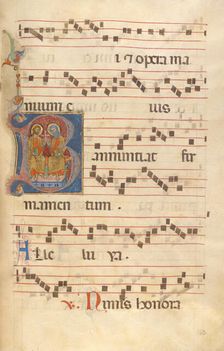 i t opera ma
nuum e ius
annunciat fir
mamen tum.
A lle lu ya.
V. Nimis honora